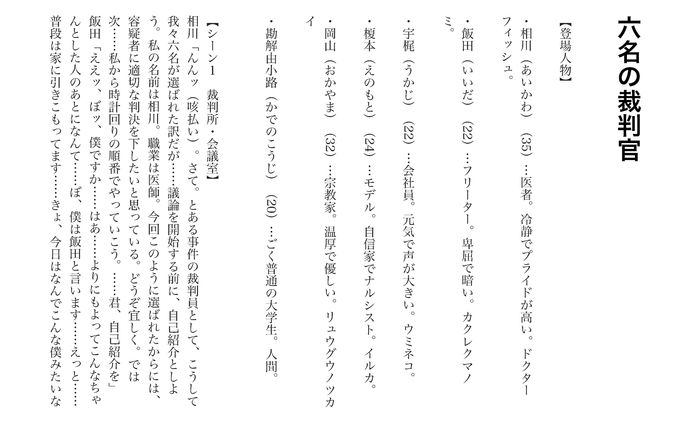 六名の裁判官
【登場人物】
・相川（あいかわ）（35）…医者。冷静でプライドが高い。ドクター
フィッシュ。
・飯田（いいだ）（22）…フリーター。卑屈で暗い。カクレクマノ
ミ。
・宇梶（うかじ）（22）…会社員。元気で声が大きい。ウミネコ。
・榎本（えのもと）（24）…モデル。自信家でナルシスト。イルカ。
・岡山（おかやま）（32）…宗教家。温厚で優しい。リュウグウノツカ
イ
・勘解由小路（かでのこうじ）（20）…ごく普通の大学生。人間。
【シーン1　裁判所・会議室】
相川「んんッ（咳払い）。さて。とある事件の裁判員として、こうして
我々六名が選ばれた訳だが……議論を開始する前に、自己紹介としよ
う。私の名前は相川。職業は医師。今回このように選ばれたからには、
容疑者に適切な判決を下したいと思っている。どうぞ宜しく。では
次……私から時計回りの順番でやっていこう。……君、自己紹介を」
飯田「ええッ、ぼッ、僕ですか……はあ……よりにもよってこんなちゃ
んとした人のあとになんて……ぼ、僕は飯田と言います……えっと……
普段は家に引きこもってます……きょ、今日はなんでこんな僕みたいな